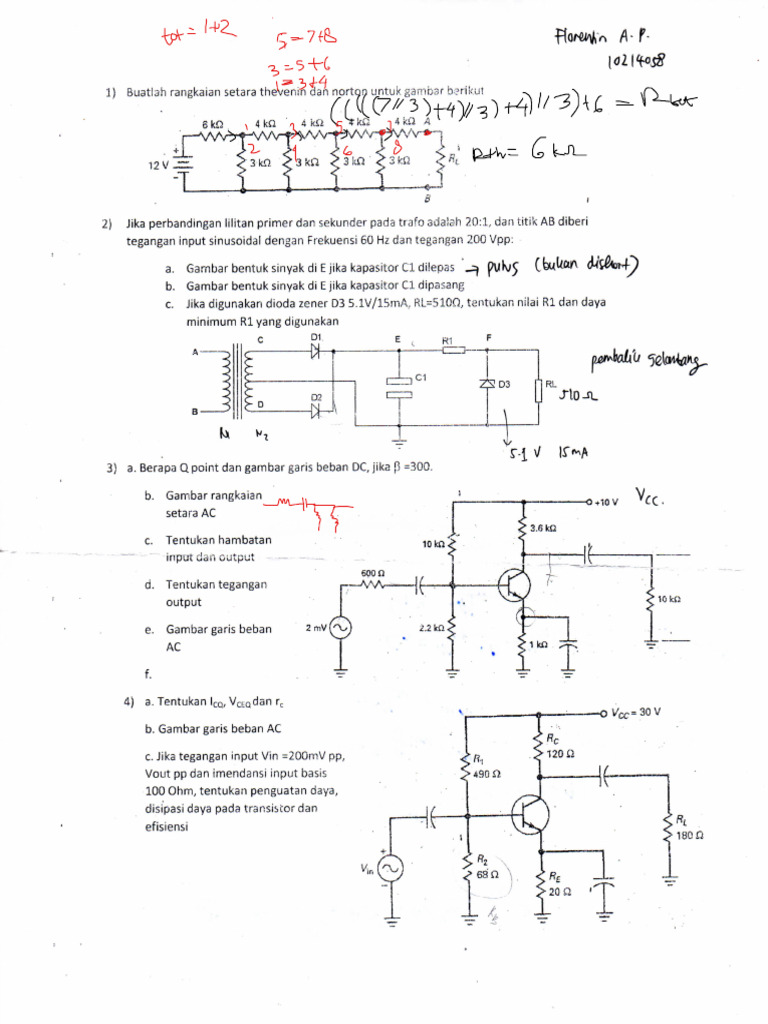 tot = 1+2
5 = 7+8
3 = 5+6
1 = 3+4
Florentin A.P.
10214058
1) Buatlah rangkaian setara thevenin dan norton untuk gambar berikut
((((7//3)+4)//3)+4)//3)+6 = Rtot
6 kΩ 4 kΩ 4 kΩ 4 kΩ 4 kΩ A
1 3 5 7
2 4 6 8
12 V 3 kΩ 3 kΩ 3 kΩ 3 kΩ RL
Rth = 6 kΩ
B
2) Jika perbandingan lilitan primer dan sekunder pada trafo adalah 20:1, dan titik AB diberi
tegangan input sinusoidal dengan Frekuensi 60 Hz dan tegangan 200 Vpp:
a. Gambar bentuk sinyak di E jika kapasitor C1 dilepas → pulss (bukan diskort)
b. Gambar bentuk sinyak di E jika kapasitor C1 dipasang
c. Jika digunakan dioda zener D3 5.1V/15mA, RL=510Ω, tentukan nilai R1 dan daya
minimum R1 yang digunakan
A C D1 E R1 F
pembalik gelombang
C1 D3 RL 510 Ω
B D D2
N N2
5.1 V 15 mA
3) a. Berapa Q point dan gambar garis beban DC, jika β =300.
b. Gambar rangkaian
setara AC
c. Tentukan hambatan
input dan output
d. Tentukan tegangan
output
e. Gambar garis beban
AC
f.
+10 V VCC.
3.6 kΩ
10 kΩ
600 Ω
10 kΩ
2 mV 2.2 kΩ
1 kΩ
4) a. Tentukan ICQ, VCEQ dan rc
b. Gambar garis beban AC
c. Jika tegangan input Vin =200mV pp,
Vout pp dan imendansi input basis
100 Ohm, tentukan penguatan daya,
disipasi daya pada transistor dan
efisiensi
VCC = 30 V
RC
120 Ω
R1
490 Ω
RL
180 Ω
Vin
R2
68 Ω
RE
20 Ω